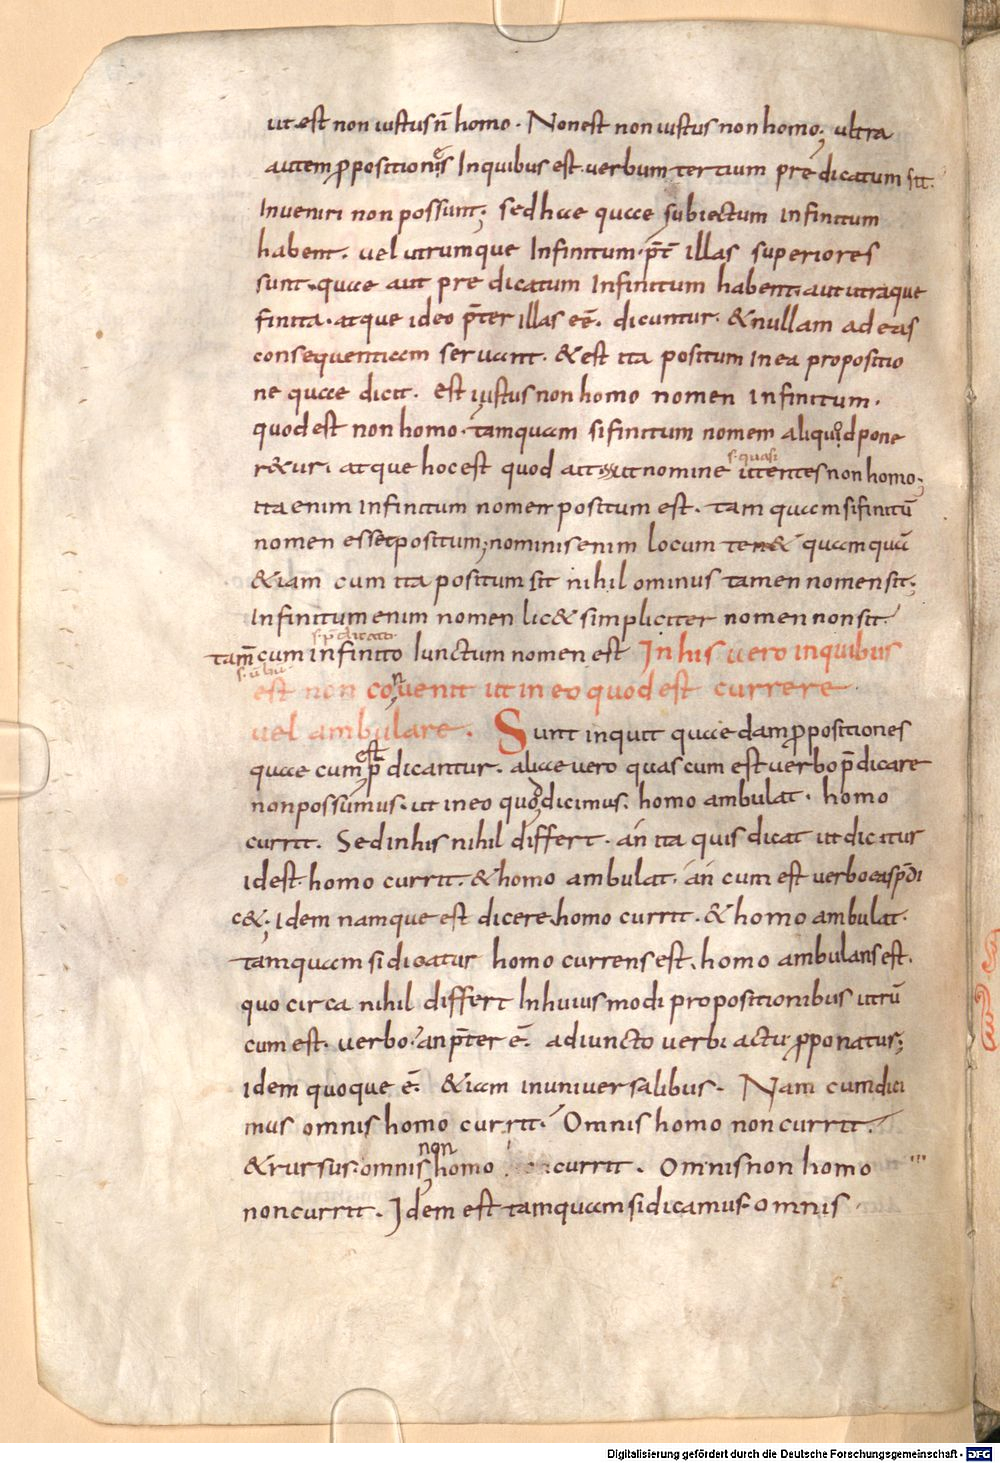 ut est non iustus n̄ homo. Non est non iustus non homo; ultra
autem ꝓpositiones Inquibus est verbum tertium predicatum sit.
Inveniri non possunt; sed hae quae subiectum infinitum
habent. vel utrumque Infinitum. p̄t illas superiores
sunt. quae aut predicatum Infinitum habent. aut utraque
finita. atque ideo p̄ter illas eē. dicuntur. &nullam ad eas
consequentiam servant. &est ita positum In ea propositio
ne quae dicit. est iustus non homo nomen Infinitum.
quod est non homo. tamquam si finitum nomen aliquod pone
r&ur. atque hoc est quod ait ut nomine utentes non homo;
s. quasi
ita enim Infinitum nomen positum est. tam quam si finitū
nomen esset positum; nominis enim locum ten& quamquā
&iam cum ita positum sit nihilominus tamen nomen sit.
Infinitum enim nomen lic& simpliciter nomen non sit
s. p̄dicato
tam̄ cum infinito Iunctum nomen est In his vero inquibus
est non convenit ut in eo quod est currere
vel ambulare. Sunt inquit quaedam ꝓpositiones
quae cum est p̄dicantur. aliae vero quas cum est verbo p̄dicare
non possumus. ut in eo quod dicimus. homo ambulat. homo
currit. Sed in his nihil differt. án ita quis dicat ut dicitur
idest. homo currit. &homo ambulat. án cum est verbo eas p̄di
c&; Idem namque est dicere homo currit. &homo ambulat.
tamquam si dicatur homo currens est. homo ambulans est.
quo circa nihil differt In huiusmodi propositionibus utrū
cum est. verbo. an p̄ter ē. adiuncto verbi actu ꝓponatur;
idem quoque ē. &iam in universalibus. Nam cum dici
mus omnis homo currit. Omnis homo non currit.
&rursus. omnis non homo currit. Omnis non homo
non currit. Idem est tamquam si dicamus. omnis
Digitalisierung gefördert durch die Deutsche Forschungsgemeinschaft - DFG